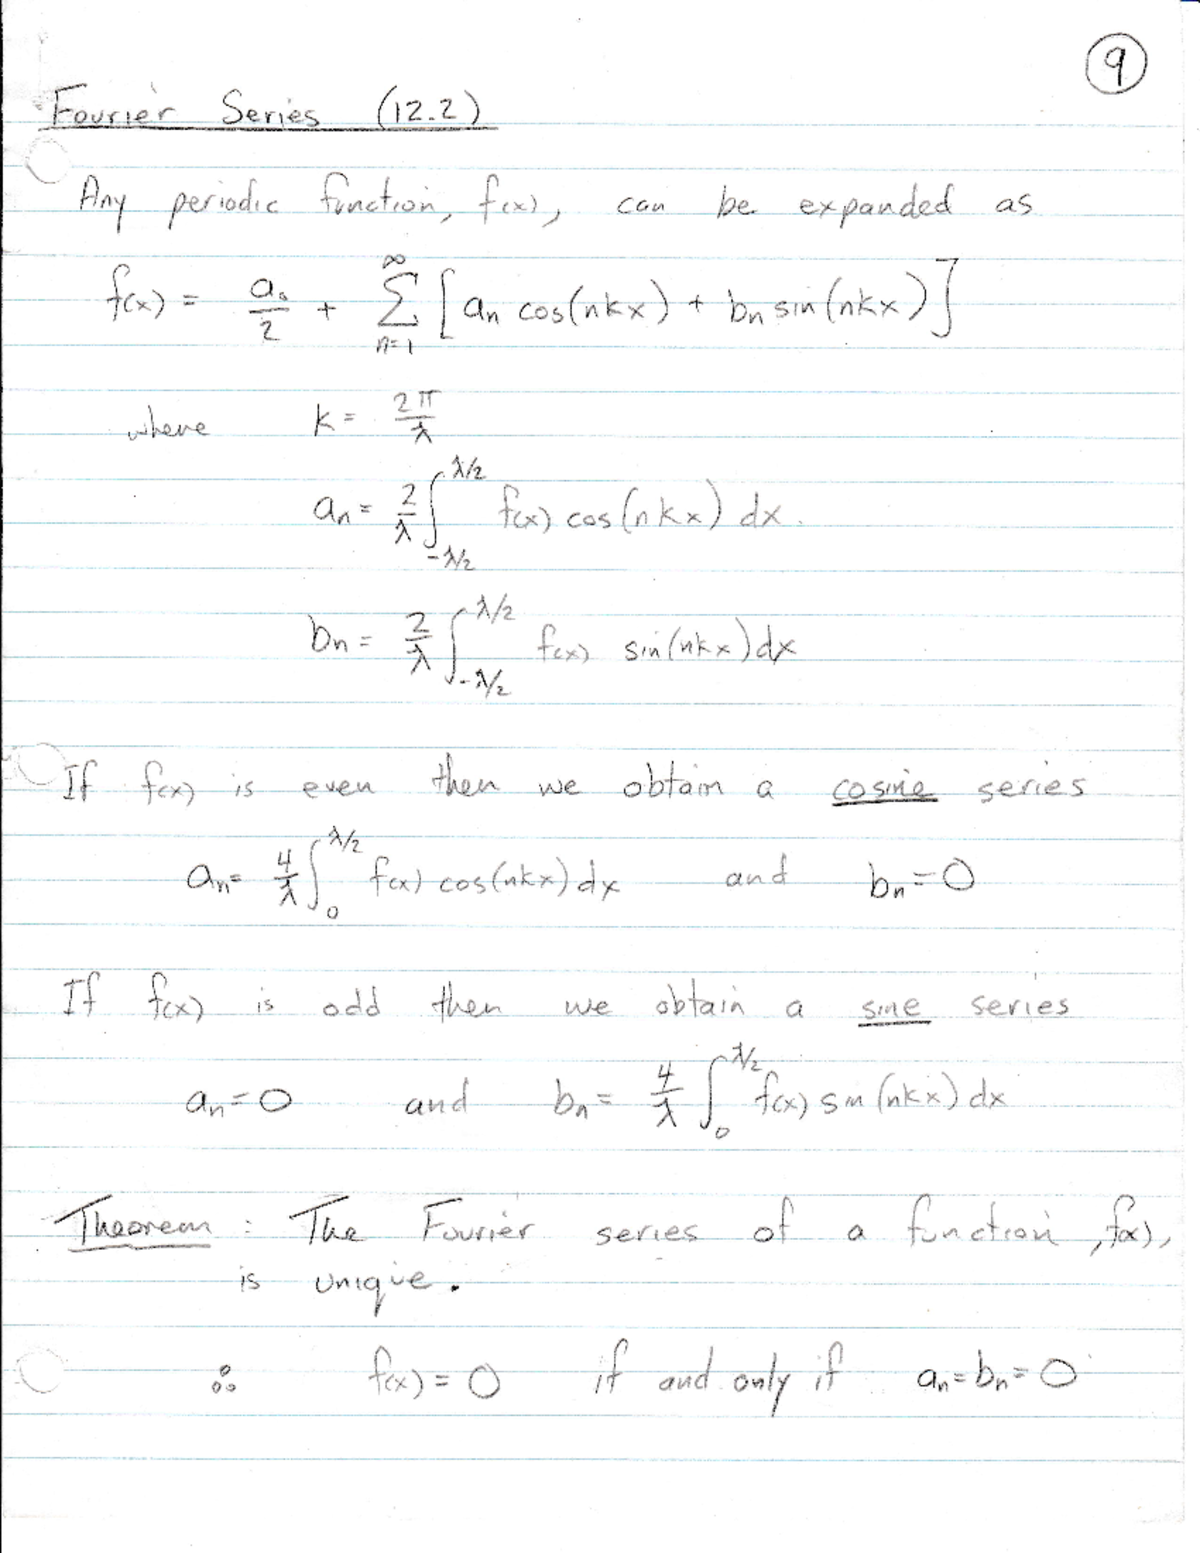 9
Fourier Series (12.2)
Any periodic function, f(x), can be expanded as
f(x) = a₀/2 + ∑_{n=1}^{∞} [aₙ cos(nkx) + bₙ sin(nkx)]
where k = 2π/λ
aₙ = 2/λ ∫_{-λ/2}^{λ/2} f(x) cos(nkx) dx.
bₙ = 2/λ ∫_{-λ/2}^{λ/2} f(x) sin(nkx) dx
If f(x) is even then we obtain a cosine series
aₙ = 4/λ ∫_{0}^{λ/2} f(x) cos(nkx) dx and bₙ = 0
If f(x) is odd then we obtain a sine series
aₙ = 0 and bₙ = 4/λ ∫_{0}^{λ/2} f(x) sin(nkx) dx
Theorem : The Fourier series of a function, f(x),
is unique.
∴ f(x) = 0 if and only if aₙ = bₙ = 0